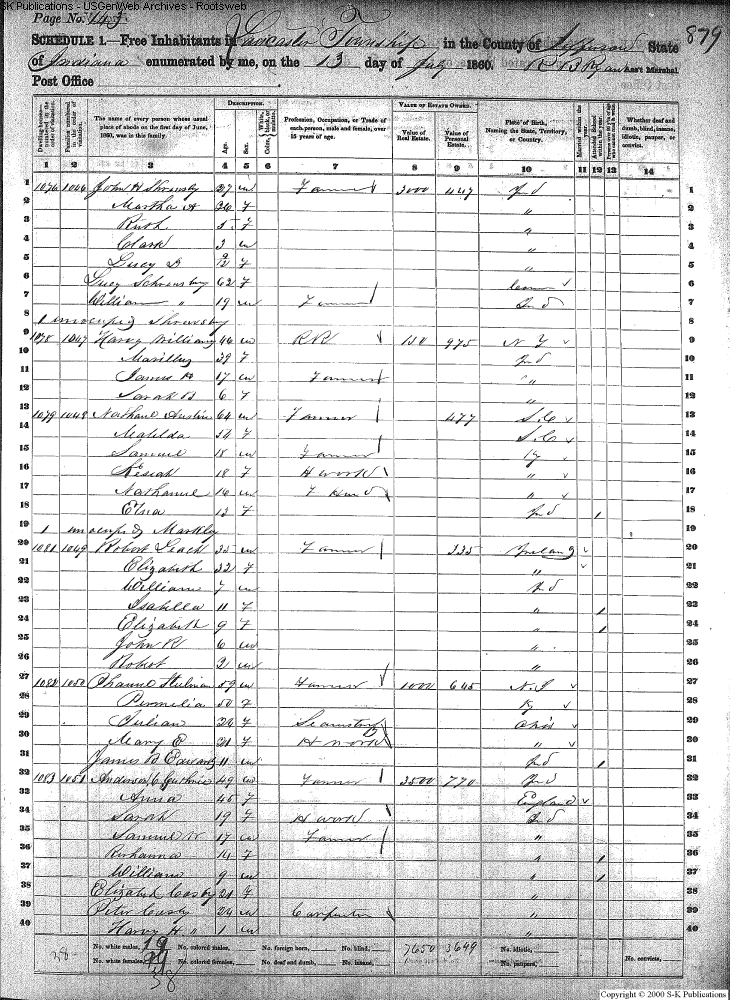 SK Publications - USGenWeb Archives - Rootsweb
Page No. 145
879
SCHEDULE 1.—Free Inhabitants in Lancaster Township in the County of Jefferson State
of Indiana enumerated by me, on the 13 day of July 1860. R B Ryan Ass't Marshal.
Post Office
Dwelling-houses—numbered in the order of visitation.
Families numbered in the order of visitation.
The name of every person whose usual place of abode on the first day of June, 1860, was in this family.
DESCRIPTION.
Age.
Sex.
Color, White, black, or mulatto.
Profession, Occupation, or Trade of each person, male and female, over 15 years of age.
VALUE OF ESTATE OWNED.
Value of Real Estate.
Value of Personal Estate.
Place of Birth, Naming the State, Territory, or Country.
Married within the year.
Attended School within the year.
Whether deaf and dumb, blind, insane, idiotic, pauper, or convict.
1 2 3 4 5 6 7 8 9 10 11 12 13 14
1 1076 1046 John H Shrewsby 37 m Farmer 3000 447 Ind 1
2 Martha A 36 f " 2
3 Ruth 5 f " 3
4 Clark 3 m " 4
5 Lucy 9/12 f " 5
6 Lucy Schrewsbury 62 f 6
7 William " 19 m Farmer Ind 7
8 1 unoccupied Shrewsby 8
9 1078 1047 Harvy Williams 46 m RR 150 975 N Y 9
10 39 f Ind 10
11 James H 17 m Farmer " 11
12 Sarah 6 f " 12
13 1079 1048 Nathanl Austin 64 m Farmer 477 S.C 13
14 Matilda 54 f S.C 14
15 Samuel 18 m Farmer Ky 15
16 Kesiah 18 f H work " 16
17 Nathaniel 16 m F Hand " 17
18 Elna 12 f Ind 1 18
19 1 unoccupied Markley 19
20 1081 1049 Robert Leach 35 m Farmer 335 Ireland 20
21 Elizabeth 32 f " 21
22 William 7 m Ind 22
23 Isabella 11 f " 1 23
24 Elizabeth 9 f " 1 24
25 John R 6 m " 25
26 Robert 2 m " 26
27 1082 1050 59 m Farmer 1000 645 N.J 27
28 Permelia 50 f Ky 28
29 Julian 26 f Seamstress Ohio 29
30 Mary E 21 f H work " 30
31 James B Edwards 11 m Ind 1 31
32 1083 1051 Anderson C Guthrie 49 m Farmer 3500 770 Ind 32
33 Anna 45 f England 33
34 Sarah 19 f H work Ind 34
35 Samuel 17 m Farmer " 35
36 Ruhanna 14 f " 1 36
37 William 9 m " 1 37
38 Elizabeth Cosby 21 f " 38
39 Peter Cosby 24 m Carpenter " 39
40 Harvy H " 1 m " 40
38 No. white males, 19 No. colored males, No. foreign born, No. blind, 7650 3649 No. idiotic, No. convicts,
No. white females, No. colored females, No. deaf and dumb, No. insane, No. paupers,
38
Copyright © 2000 S-K Publications